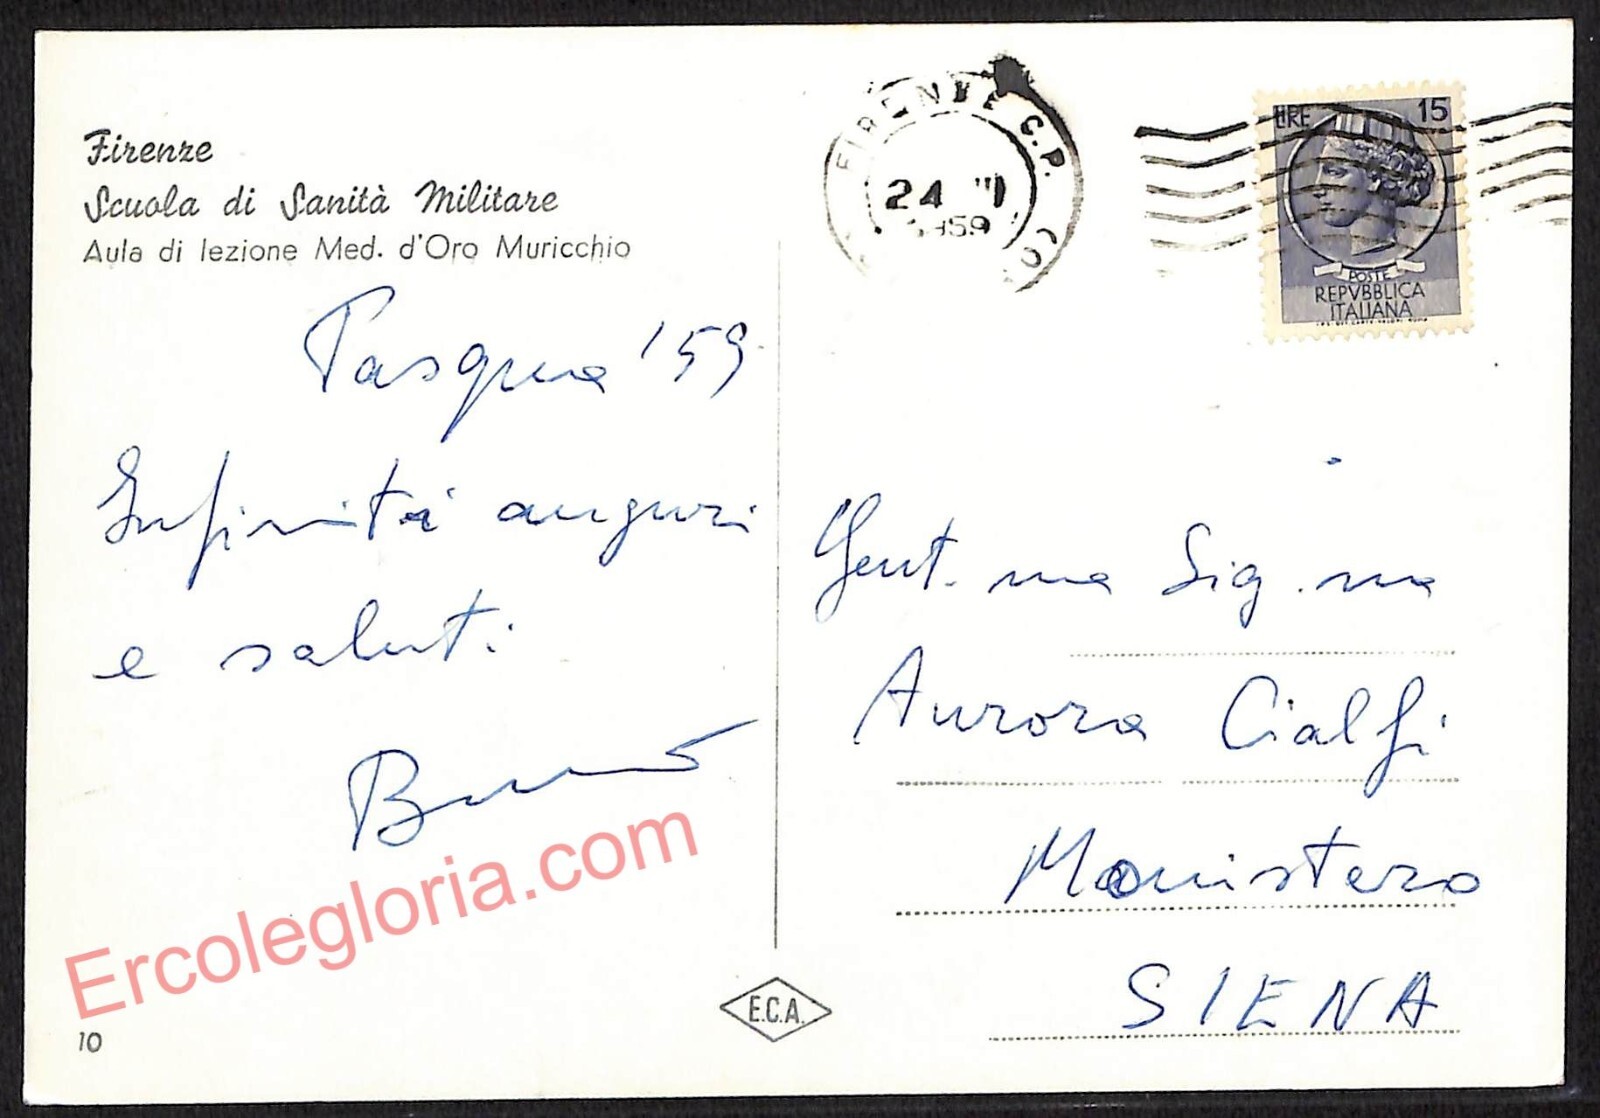 Firenze
Scuola di Sanità Militare
Aula di lezione Med. d'Oro Muricchio
Pasqua '59
Infiniti auguri
e saluti
FIRENZE C.P.
24
1959
LIRE 15
POSTE
REPVBBLICA
ITALIANA
Gent.ma Sig.na
Aurora Cialfi
Monistero
SIENA
Ercolegloria.com
E.C.A.
10